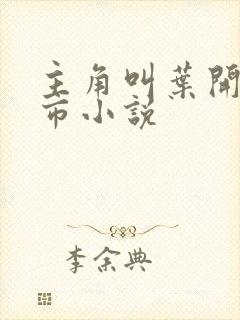 主角叫葉開
市小說
李余典